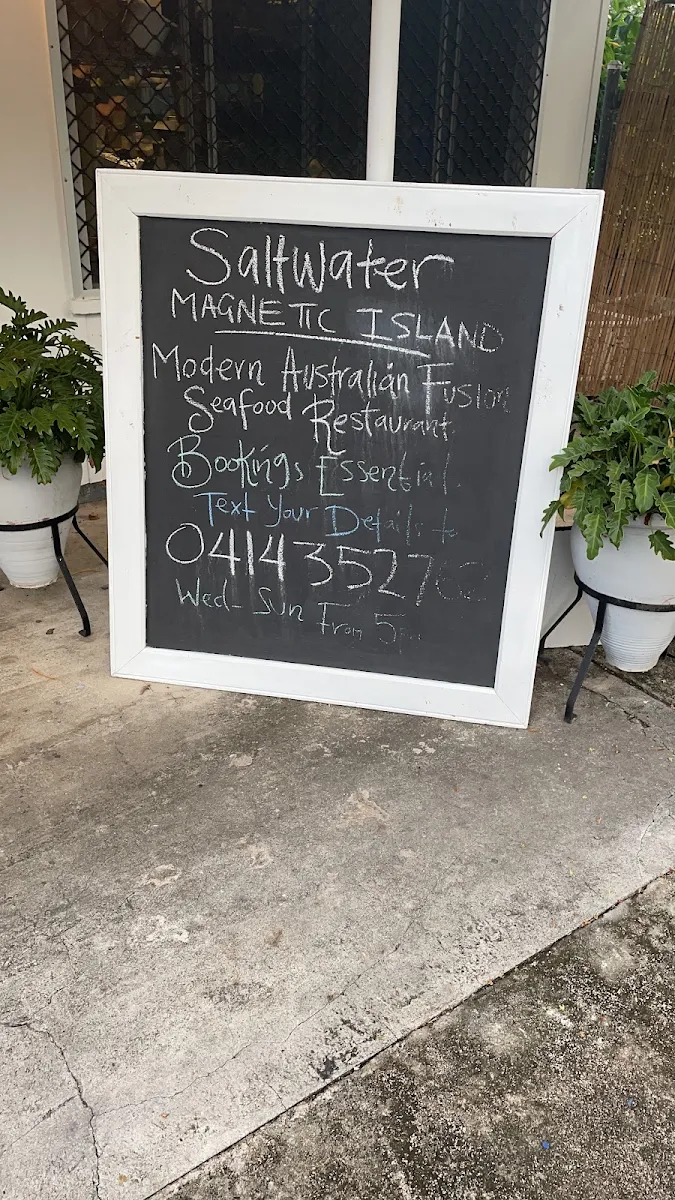 Saltwater
MAGNETIC ISLAND
Modern Australian Fusion
Seafood Restaurant
Bookings Essential.
Text Your Details to
0414352762
Wed - Sun From 5pm